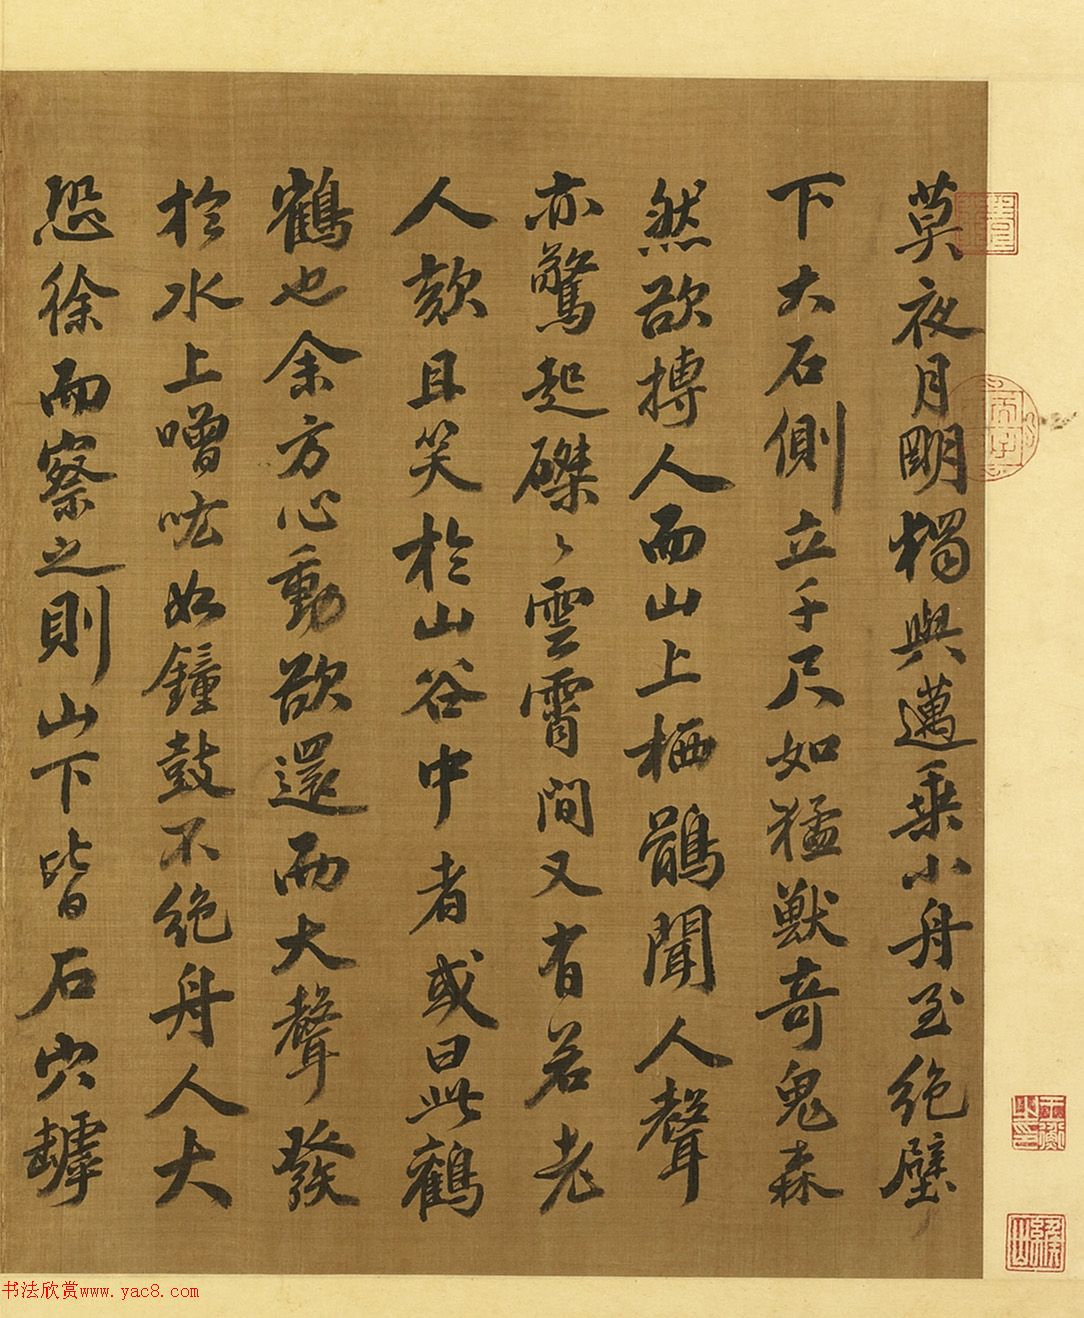 莫夜月明獨與邁乗小舟至絶壁
下大石側立千尺如猛獸奇鬼森
然欲搏人而山上栖鶻聞人聲
亦驚起磔〻雲霄間又有若老
人欬且笑於山谷中者或曰此鶴
鶴也余方心動欲還而大聲發
於水上噌吰如鐘鼓不絶舟人大
恐徐而察之則山下皆石穴罅
书法欣赏www.yac8.com